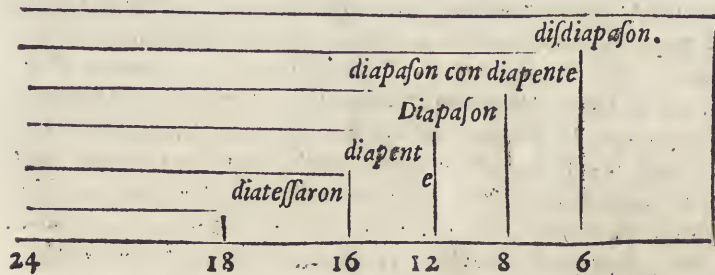 diſdiapaſon.
diapaſon con diapente
Diapaſon
diapent
e
diateſſaron
24 18 16 12 8 6